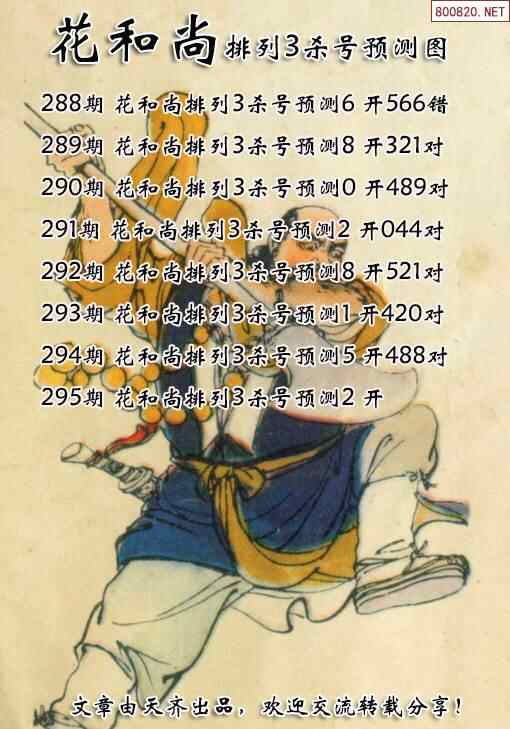 800820.NET
花和尚排列3杀号预测图
288期 花和尚排列3杀号预测6 开566错
289期 花和尚排列3杀号预测8 开321对
290期 花和尚排列3杀号预测0 开489对
291期 花和尚排列3杀号预测2 开044对
292期 花和尚排列3杀号预测8 开521对
293期 花和尚排列3杀号预测1 开420对
294期 花和尚排列3杀号预测5 开488对
295期 花和尚排列3杀号预测2 开
文章由天齐出品，欢迎交流转载分享！